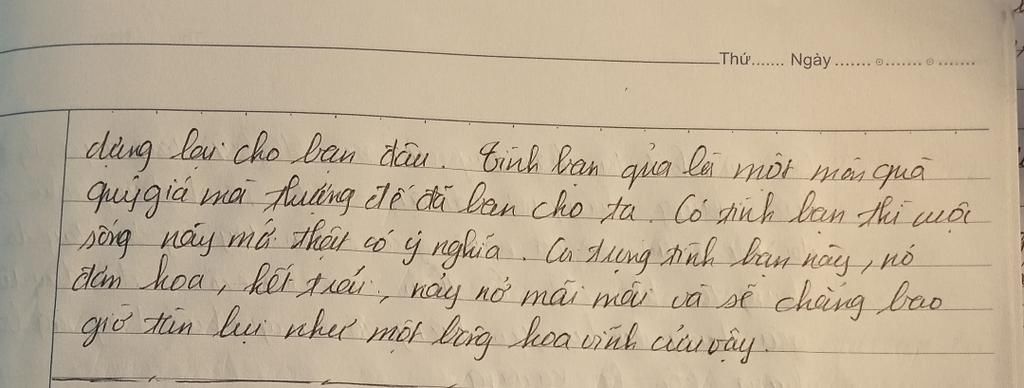 Thứ....... Ngày ....... ๏....... ๏ .......
dừng lại cho bạn đâu. Tình bạn qủa là một món quà
quý giá mà thượng đế đã ban cho ta. Có tình bạn thì cuộc
sống này mới thật có ý nghĩa. Cứ tưng tình bạn này, nó
đơm hoa, kết trái, nảy nở mãi mãi và sẽ chẳng bao
giờ tàn lụi như một bông hoa vĩnh cửu vậy.